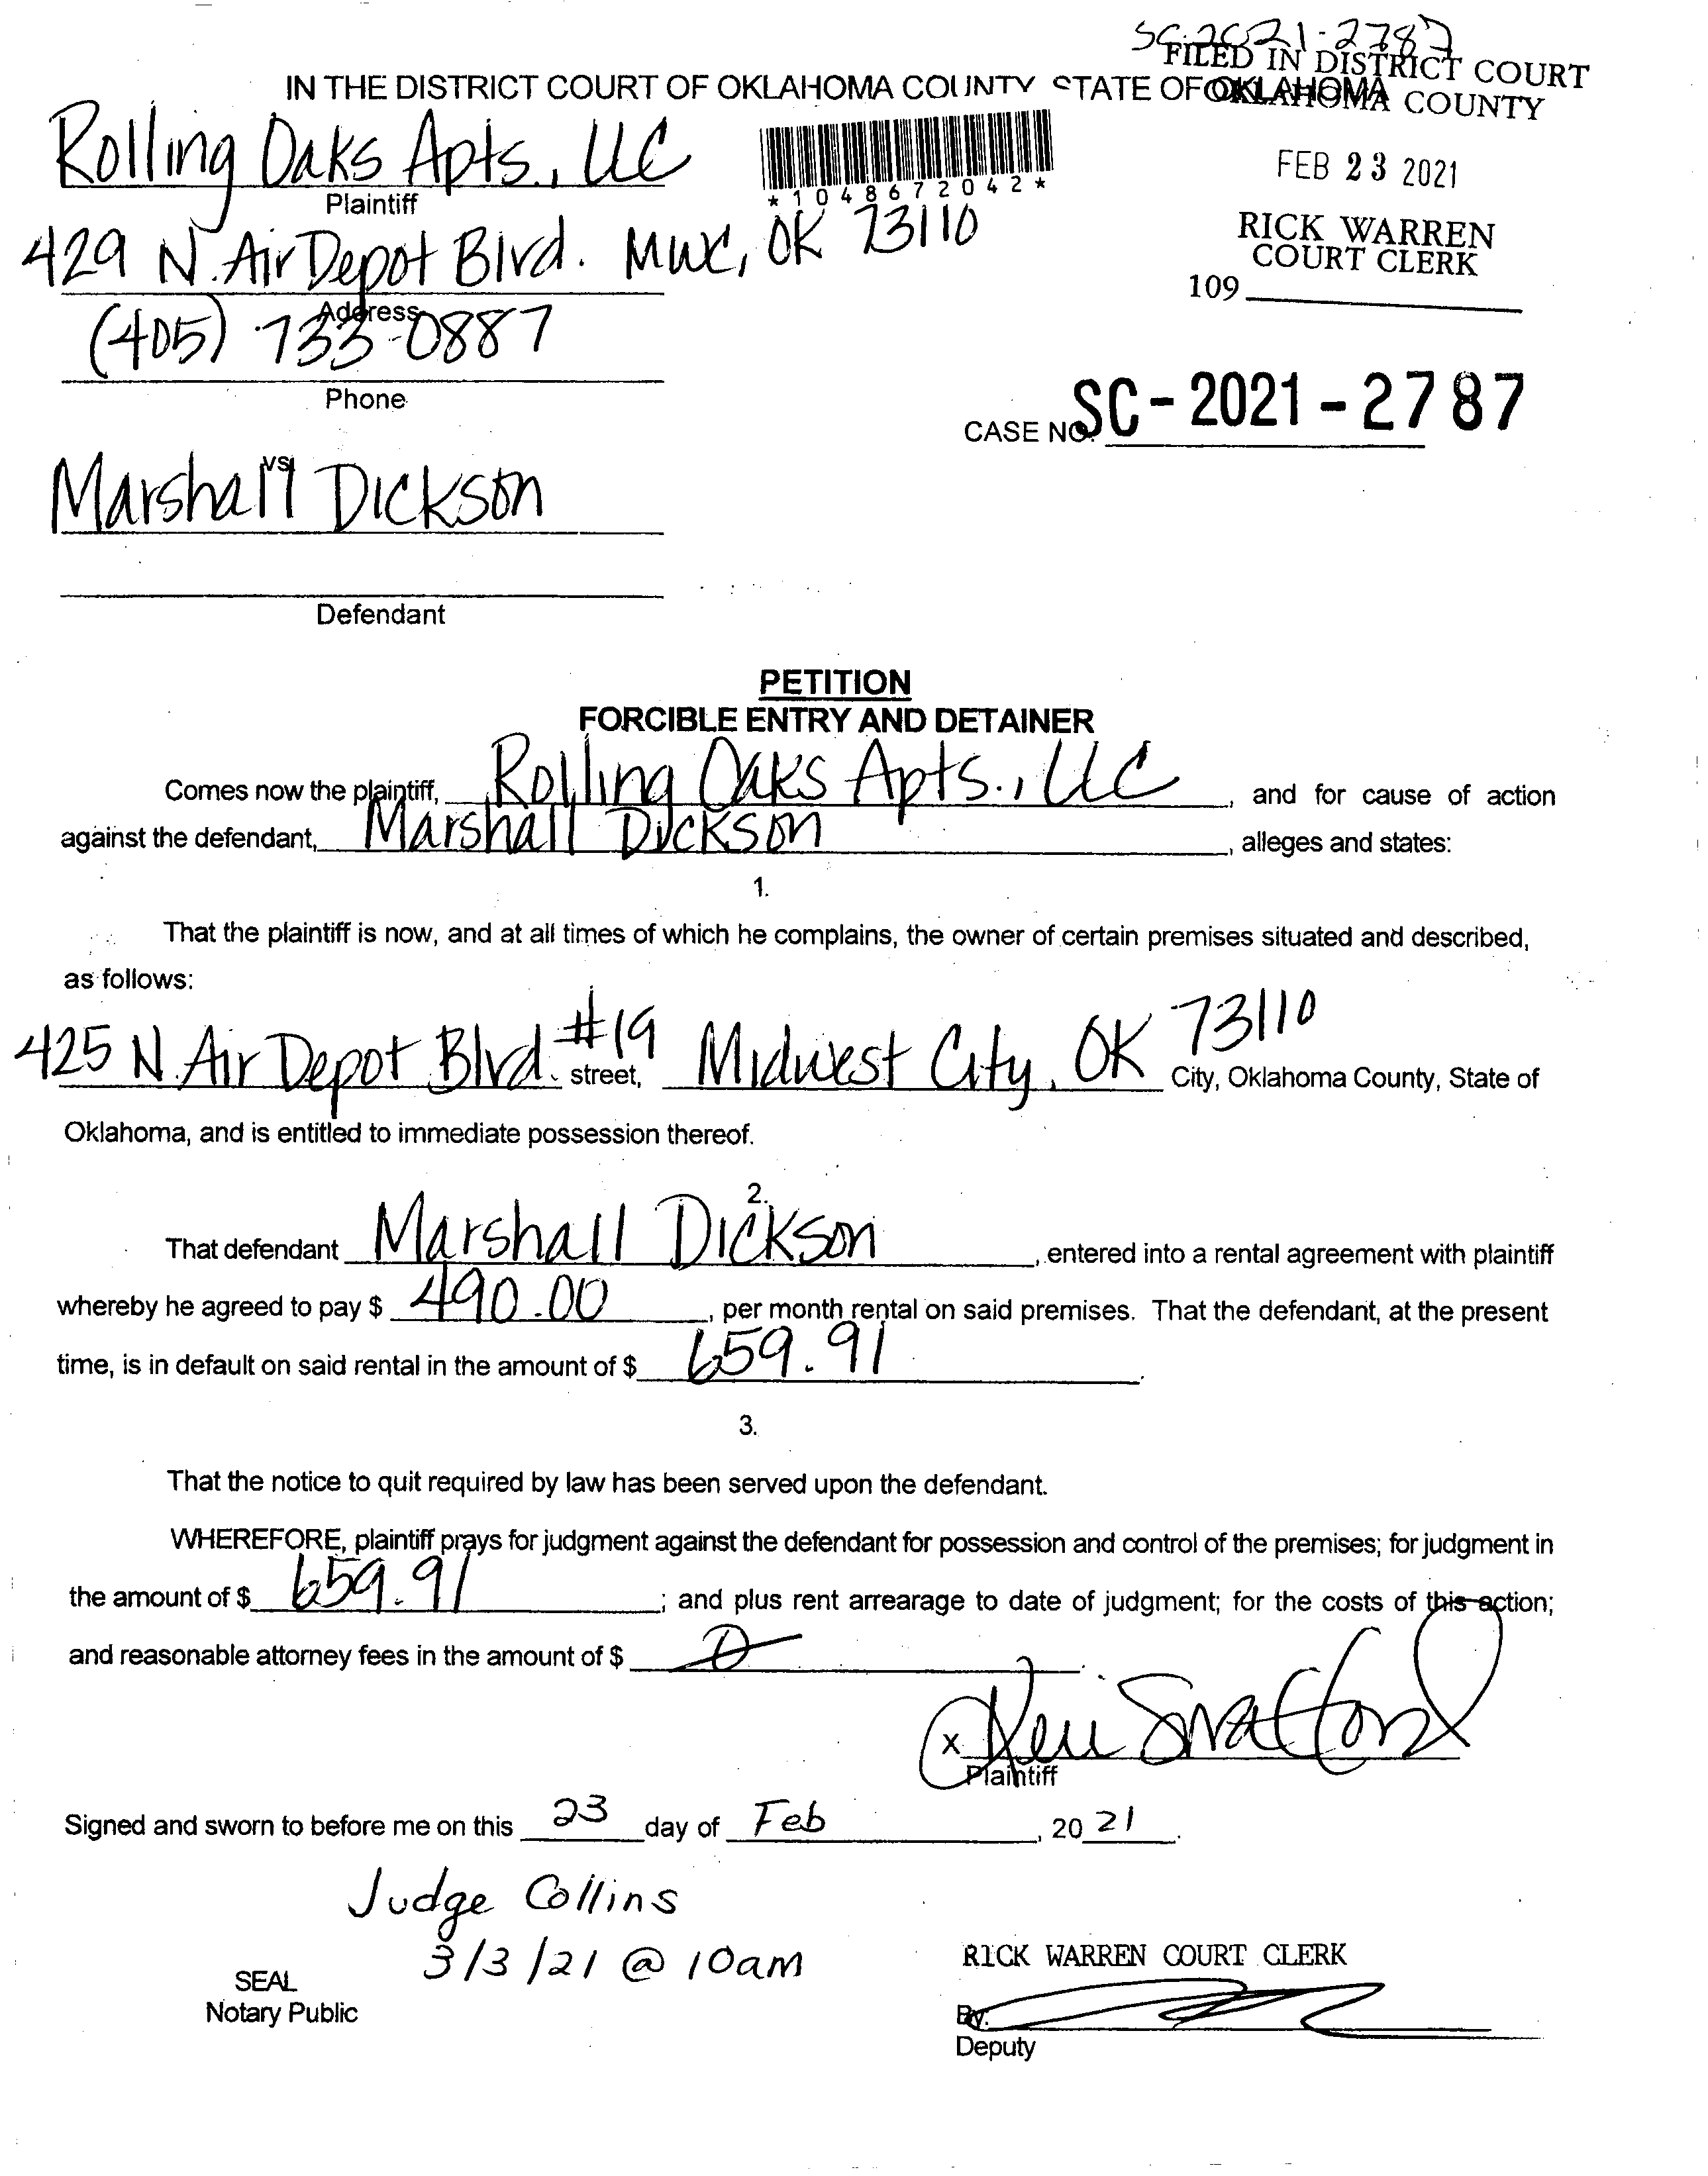 SC-2021-2787
FILED IN DISTRICT COURT
IN THE DISTRICT COURT OF OKLAHOMA COUNTY STATE OF OKLAHOMA
OKLAHOMA COUNTY
Rolling Oaks Apts., LLC
Plaintiff
*1048672042*
FEB 23 2021
429 N. Air Depot Blvd. MWC, OK 73110
Address
RICK WARREN
COURT CLERK
109
(405) 733-0887
Phone
CASE NO. SC-2021-2787
vs.
Marshall Dickson
Defendant
PETITION
FORCIBLE ENTRY AND DETAINER
Comes now the plaintiff, Rolling Oaks Apts., LLC, and for cause of action
against the defendant, Marshall Dickson, alleges and states:
1.
That the plaintiff is now, and at all times of which he complains, the owner of certain premises situated and described,
as follows:
425 N. Air Depot Blvd. #19 street, Midwest City, OK 73110 City, Oklahoma County, State of
Oklahoma, and is entitled to immediate possession thereof.
2.
That defendant Marshall Dickson, entered into a rental agreement with plaintiff
whereby he agreed to pay $ 490.00, per month rental on said premises. That the defendant, at the present
time, is in default on said rental in the amount of $ 659.91.
3.
That the notice to quit required by law has been served upon the defendant.
WHEREFORE, plaintiff prays for judgment against the defendant for possession and control of the premises; for judgment in
the amount of $ 659.91; and plus rent arrearage to date of judgment; for the costs of this action;
and reasonable attorney fees in the amount of $
x
Plaintiff
Signed and sworn to before me on this 23 day of Feb, 2021.
Judge Collins
3/3/21 @ 10am
RICK WARREN COURT CLERK
SEAL
Notary Public
By:
Deputy